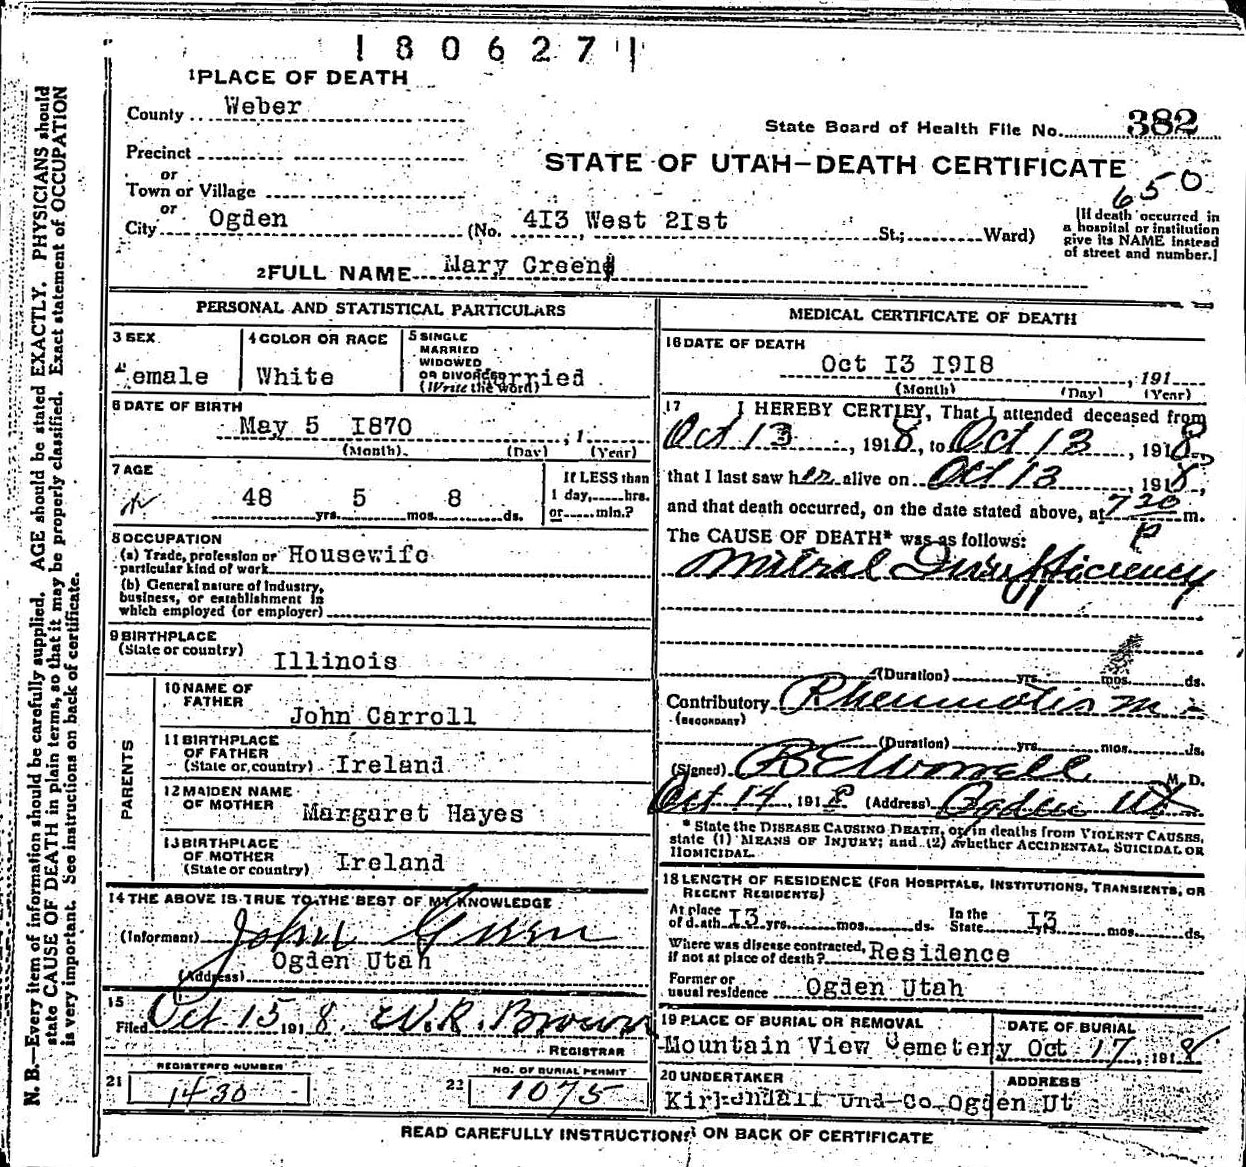 1806271
1 PLACE OF DEATH
County Weber
State Board of Health File No. 382
Precinct
or
STATE OF UTAH—DEATH CERTIFICATE
650
Town or Village
or
City Ogden (No. 4I3 West 2Ist St.; Ward)
[If death occurred in
a hospital or institution
give its NAME instead
of street and number.]
2 FULL NAME Mary Green
PERSONAL AND STATISTICAL PARTICULARS
3 SEX
Female
4 COLOR OR RACE
White
5 SINGLE
MARRIED
WIDOWED
OR DIVORCED
(Write the word)
Married
6 DATE OF BIRTH
May 5 I870 , 1
(Month) (Day) (Year)
7 AGE
48 yrs. 5 mos. 8 ds.
If LESS than
1 day, hrs.
or min.?
8 OCCUPATION
(a) Trade, profession or
particular kind of work Housewife
(b) General nature of Industry,
business, or establishment in
which employed (or employer)
9 BIRTHPLACE
(State or country)
Illinois
PARENTS
10 NAME OF
FATHER
John Carroll
11 BIRTHPLACE
OF FATHER
(State or country) Ireland
12 MAIDEN NAME
OF MOTHER Margaret Hayes
13 BIRTHPLACE
OF MOTHER
(State or country) Ireland
14 THE ABOVE IS TRUE TO THE BEST OF MY KNOWLEDGE
(Informant) John Green
(Address) Ogden Utah
15
Filed Oct 15 1918. W.R. Brown
REGISTRAR
21 REGISTERED NUMBER
1430
22 NO. OF BURIAL PERMIT
1075
MEDICAL CERTIFICATE OF DEATH
16 DATE OF DEATH
Oct I3 I9I8 , 191
(Month) (Day) (Year)
17 I HEREBY CERTIFY, That I attended deceased from
Oct 13, 1918, to Oct 13, 1918,
that I last saw her alive on Oct 13, 1918,
and that death occurred, on the date stated above, at 7 20 P m.
The CAUSE OF DEATH* was as follows:
Mitral Insufficiency
(Duration) yrs. mos. ds.
Contributory Rheumatism
(SECONDARY)
(Duration) yrs. mos. ds.
(Signed) M. D.
Oct 14, 1918 (Address) Ogden Ut
* State the DISEASE CAUSING DEATH, or, in deaths from VIOLENT CAUSES,
state (1) MEANS OF INJURY; and (2) whether ACCIDENTAL, SUICIDAL OR
HOMICIDAL.
18 LENGTH OF RESIDENCE (FOR HOSPITALS, INSTITUTIONS, TRANSIENTS, OR
RECENT RESIDENTS)
At place
of death I3 yrs. mos. ds. In the
State I3 yrs. mos. ds.
Where was disease contracted,
if not at place of death? Residence
Former or
usual residence Ogden Utah
19 PLACE OF BURIAL OR REMOVAL
Mountain View Cemetery
DATE OF BURIAL
Oct 17, 1918
20 UNDERTAKER
Kirkendall Und Co
ADDRESS
Ogden Ut
READ CAREFULLY INSTRUCTIONS ON BACK OF CERTIFICATE
N. B.—Every item of information should be carefully supplied. AGE should be stated EXACTLY. PHYSICIANS should
state CAUSE OF DEATH in plain terms, so that it may be properly classified. Exact statement of OCCUPATION
is very important. See instructions on back of certificate.